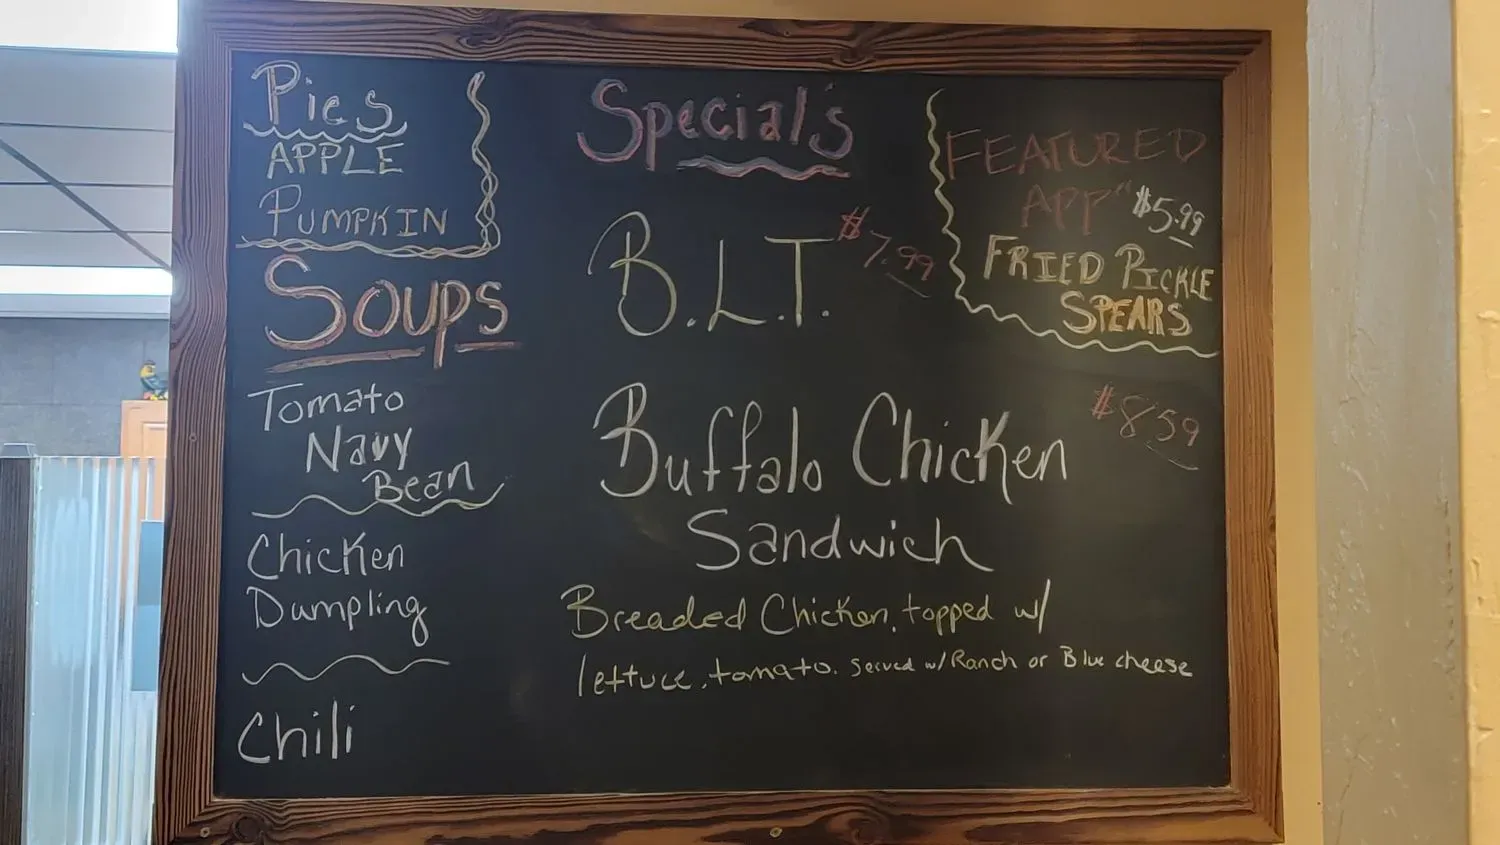 Pies
APPLE
PUMPKIN
Soups
Tomato
Navy
Bean
Chicken
Dumpling
Chili
Special's
B.L.T. $7.99
Buffalo Chicken $8.59
Sandwich
Breaded Chicken, topped w/
lettuce, tomato. Served w/ Ranch or Blue cheese
FEATURED
APP" $5.99
FRIED PICKLE
SPEARS